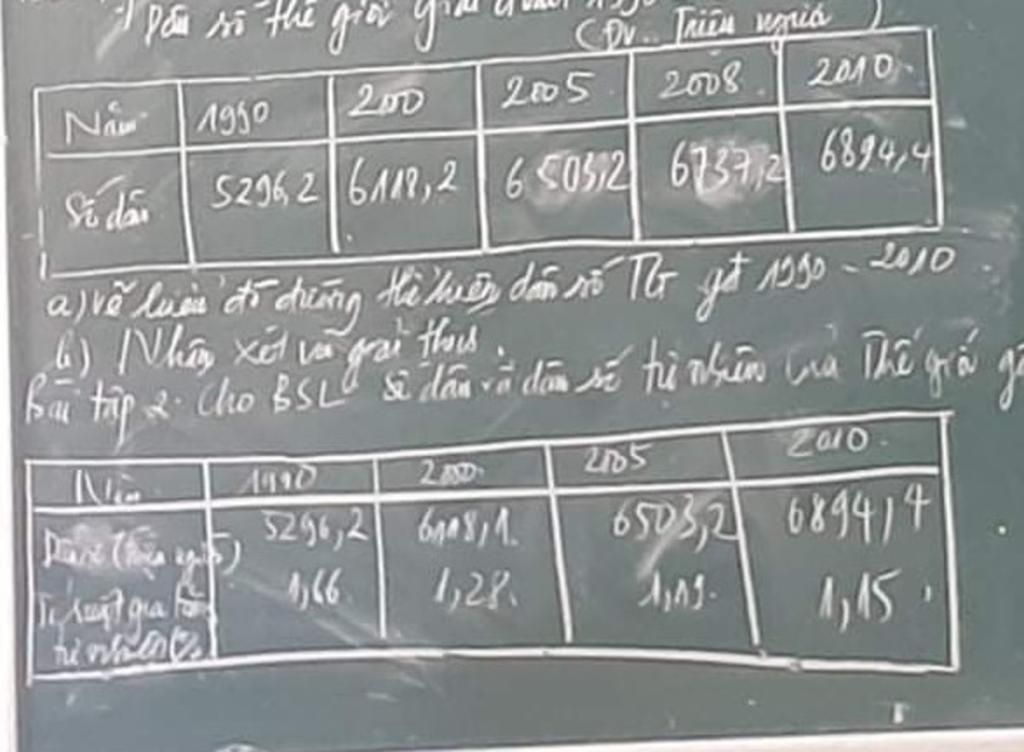 Dân số thế giới giai đoạn 1990
(Đv: Triệu người)
Năm 1990 2000 2005 2008 2010
Số dân 5296,2 6118,2 6503,2 6737,2 6894,4
a) vẽ biểu đồ đường thể hiện dân số TG gđ 1990 - 2010
b) Nhận xét và giải thích.
Bài tập 2. Cho BSL số dân và dân số tự nhiên của Thế giới
Năm 1990 2000 2005 2010
Dân số (triệu người) 5296,2 6118,1 6503,2 6894,4
Tỉ suất gia tăng 1,66 1,28 1,19 1,15
tự nhiên (%)